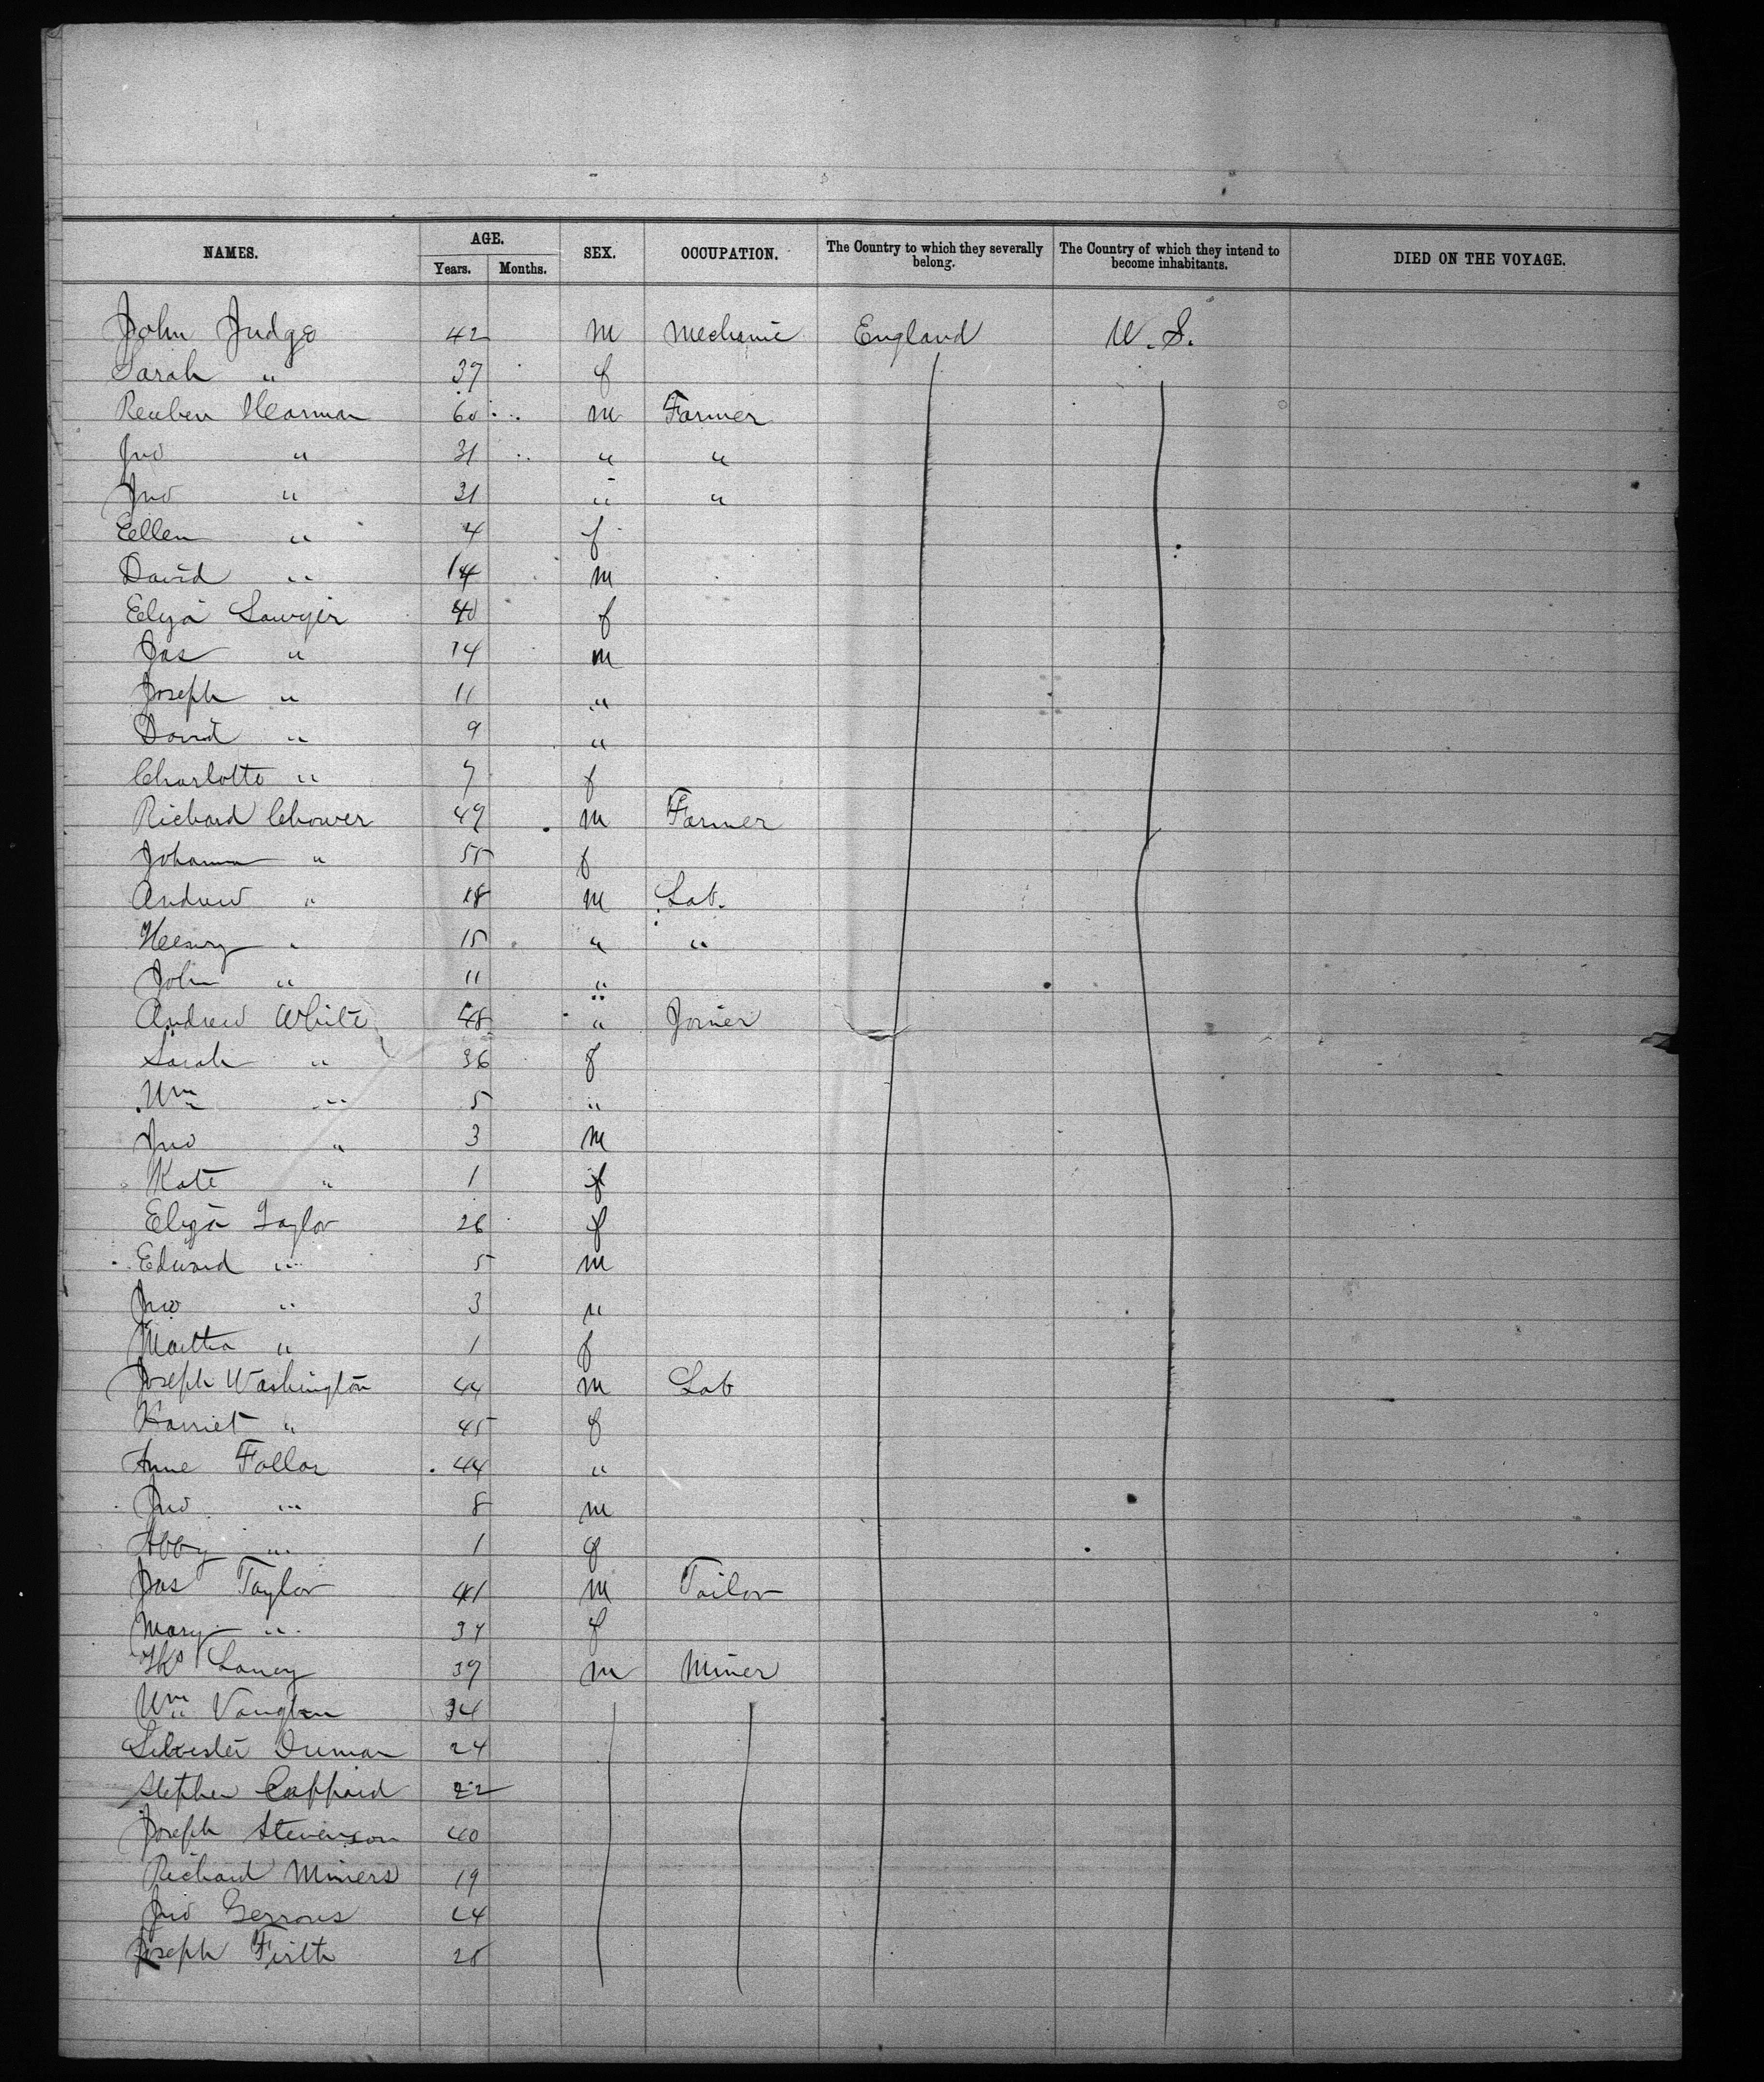 NAMES. AGE. Years. Months. SEX. OCCUPATION. The Country to which they severally belong. The Country of which they intend to become inhabitants. DIED ON THE VOYAGE.
John Judge 42 m Mechanic England U. S.
Sarah " 37 f
Reuben Hearman 60 m Farmer
Jno " 31 " "
Jno " 31 " "
Ellen " 4 f
David " 14 m
Eliza Sawyer 40 f
Jas " 14 m
Joseph " 11 "
David " 9 "
Charlotte " 7 f
Richard Chower 49 m Farmer
Johanna " 55 f
Andrew " 18 m Lab.
Henry " 15 " "
John " 11 "
Andrew White 48 " Joiner
Sarah " 36 f
Wm " 5 "
Jno " 3 m
Kate " 1 f
Eliza Taylor 26 f
Edward " 5 m
Jno " 3 "
Martha " 1 f
Joseph Washington 44 m Lab
Harriet " 45 f
Anne Follar 44 "
Jno " 8 m
Abby " 1 f
Jas Taylor 41 m Tailor
Mary " 37 f
Ths Laney 39 m Miner
Wm Vaughan 34
Silvester 24
Stephen 22
Joseph Stevenson 40
Richard Miners 19
Jno 24
Joseph Firth 25